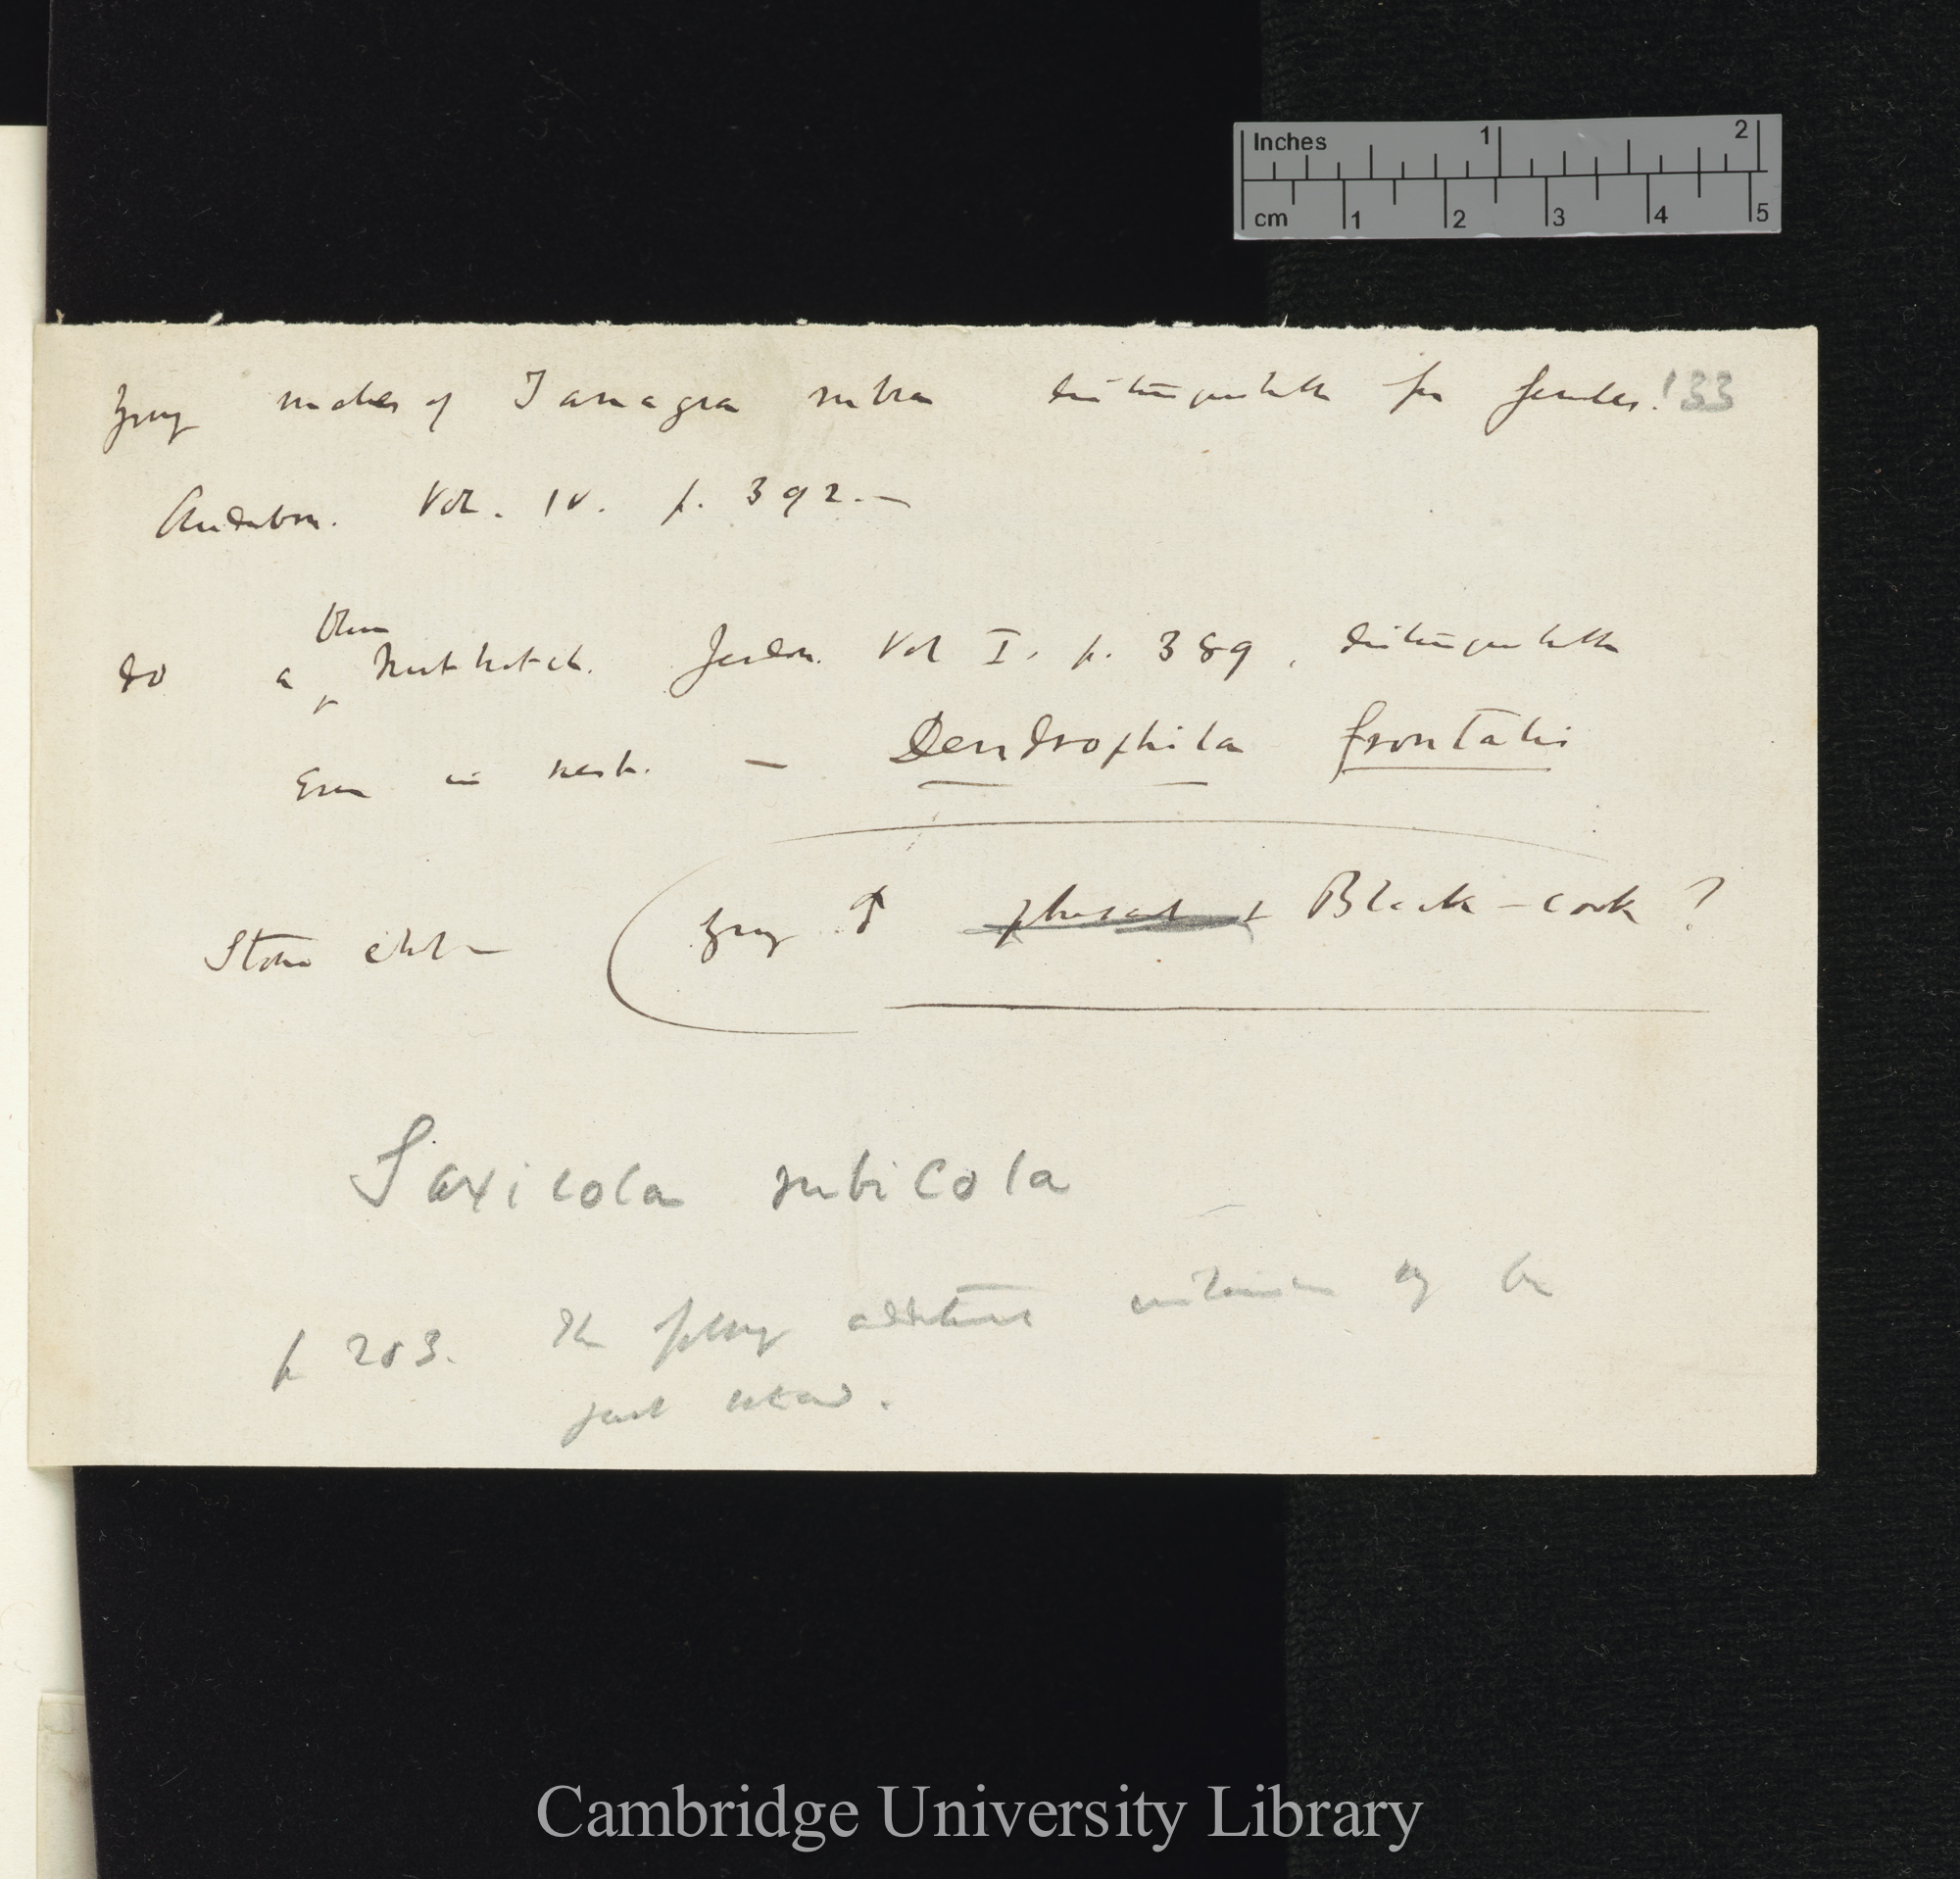 Inches 1 2
cm 1 2 3 4 5
133
Young males of Tanagra rubra distinguishable from females.
Audubon. Vol. IV. p. 392.—
do a Nuthatch. Jerdon. Vol I. p. 389, distinguishable
Even in nest. — Dendrophila frontalis
Stone chat — Young ♂ pheasant & Black-cock?
Saxicola rubicola
p 203. The following additional by
just
Cambridge University Library